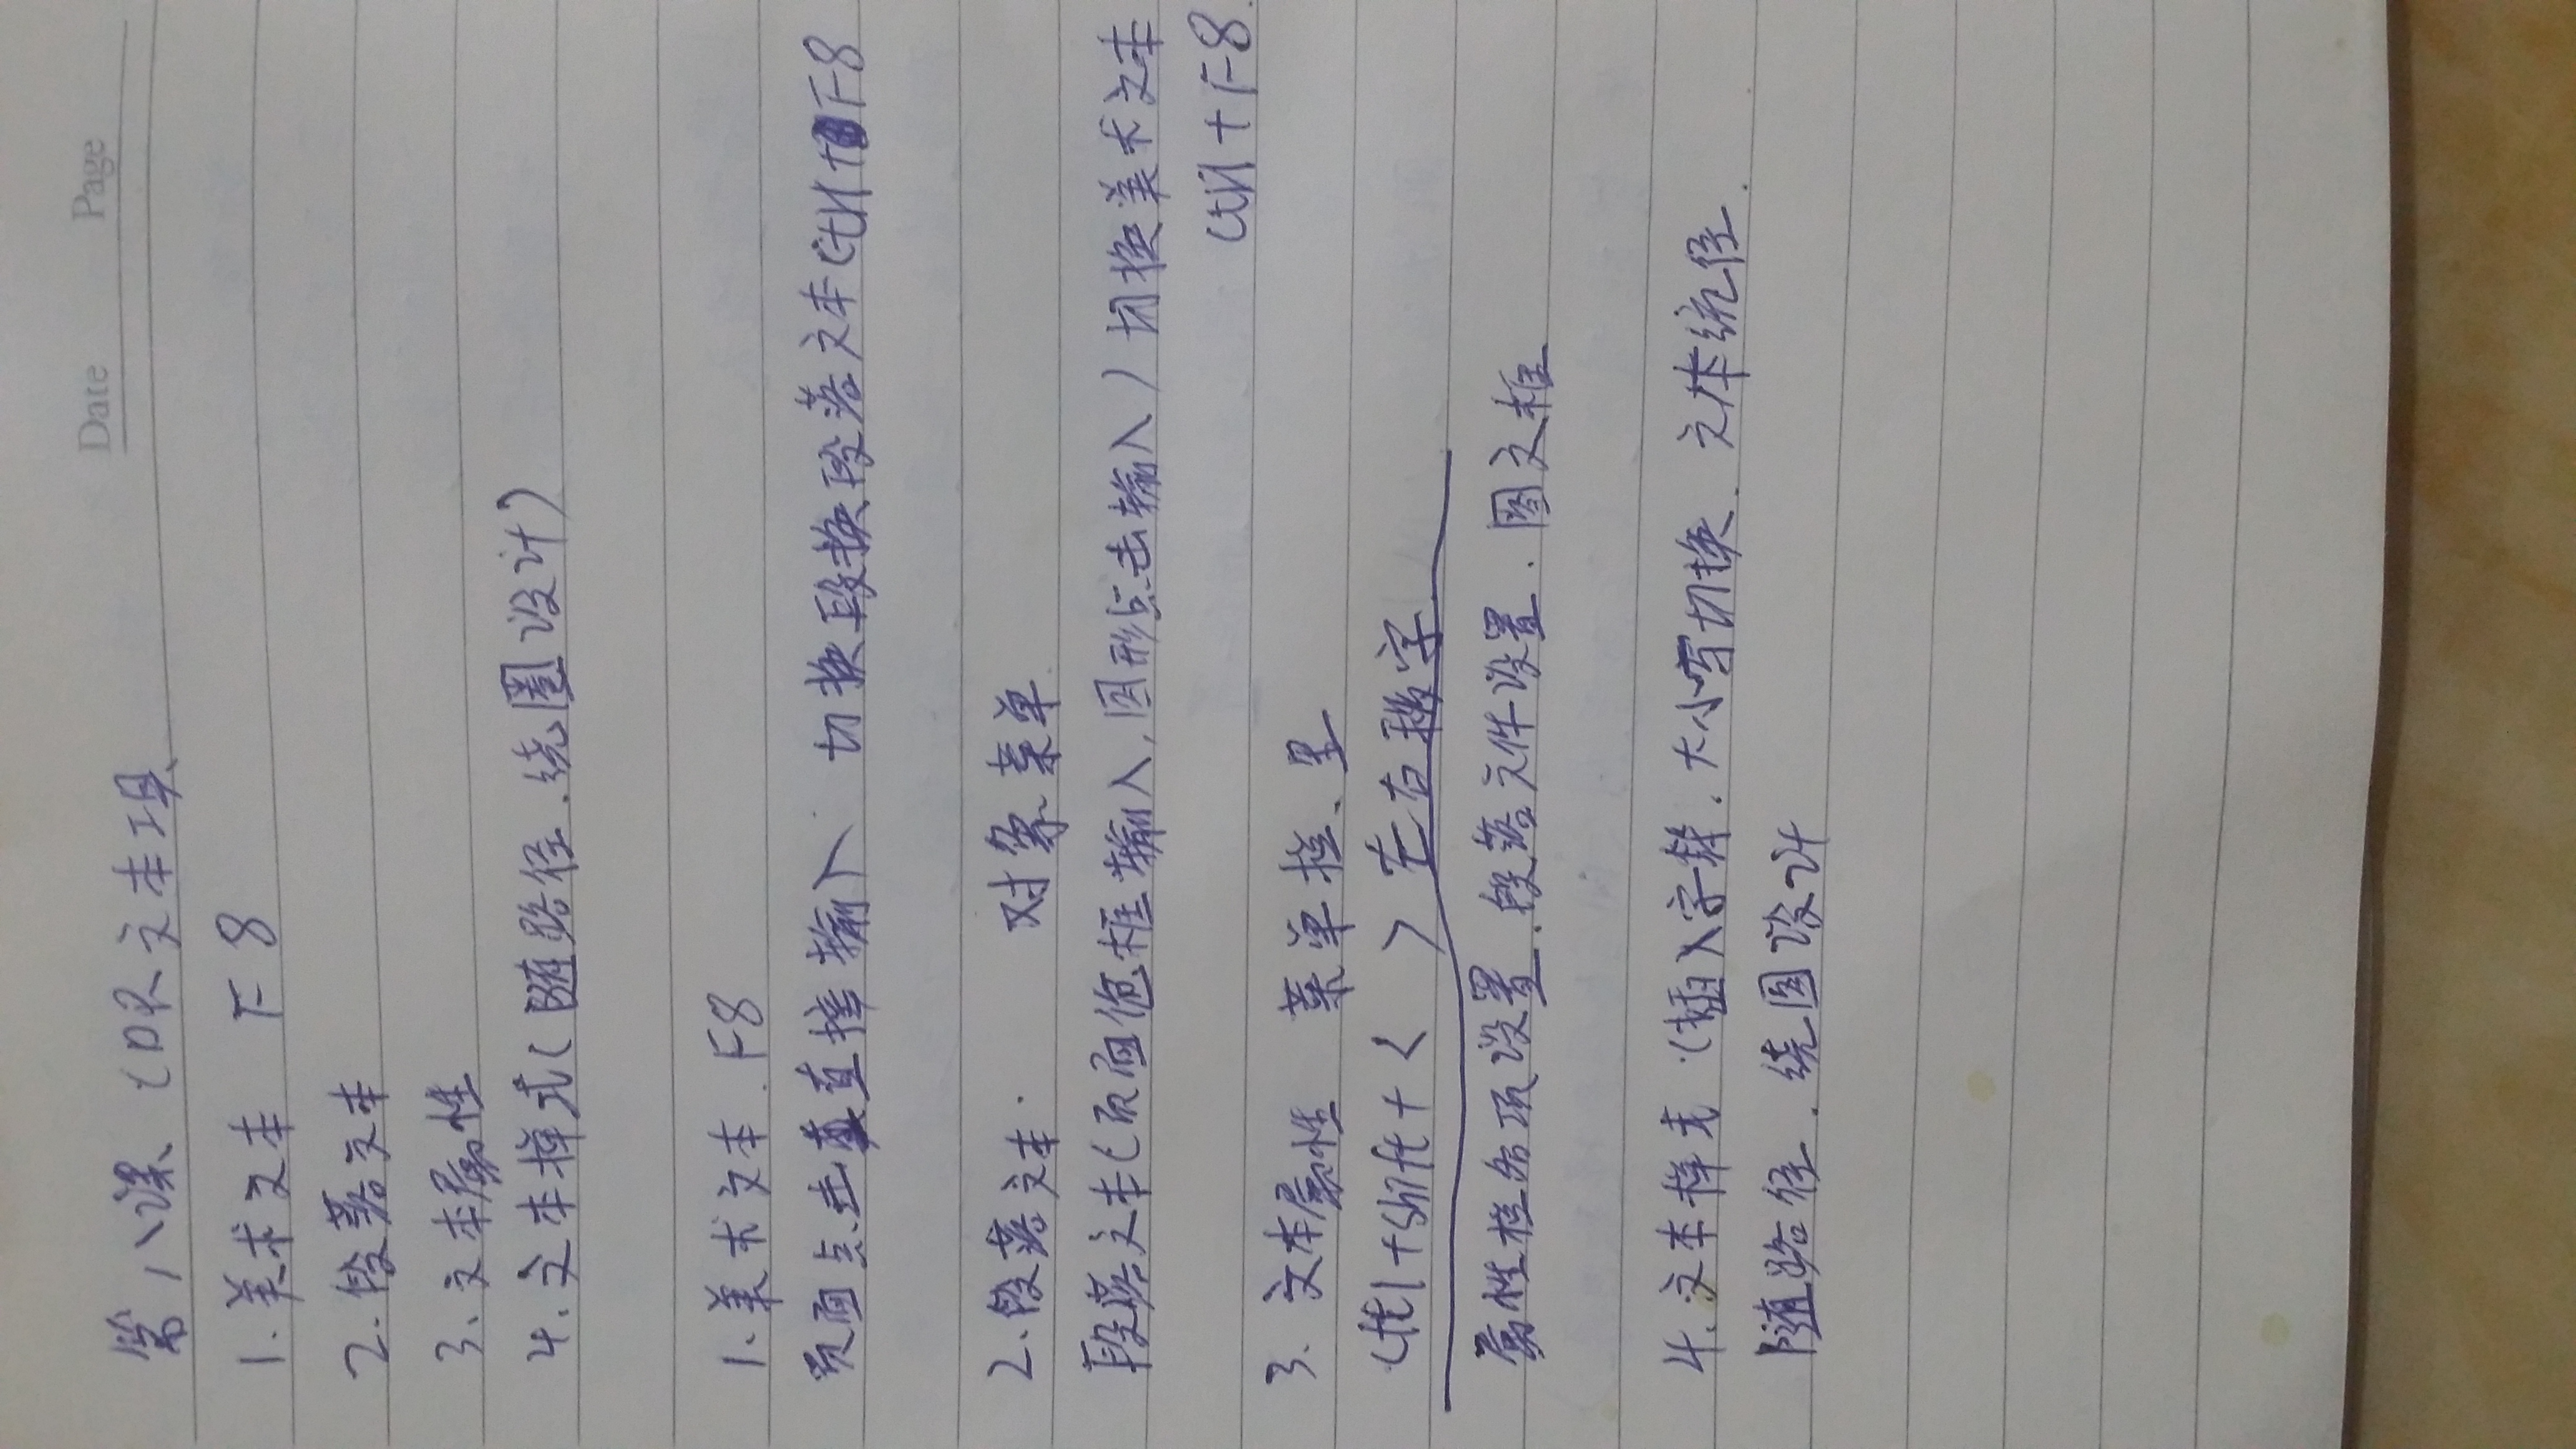 Date Page
第八课、CDR文本工具
1.美术文本 F8
2.段落文本
3.文本属性
4.文本样式(随路径.绕圈设计)
1.美术文本.F8
页面点击直接输入 切换段换段落文本Ctrl+F8
2.段落文本. 对象菜单
段落文本(页面拖框输入,图形点击输入)切换美术文本
Ctrl+F8.
3.文本属性 菜单栏、里
Ctrl+Shift+< > 左右移字
属性栏各项设置.段落文件设置.图文框
4.文本样式(插入字符.大小写切换.文本绕径.
随路径.绕图设计